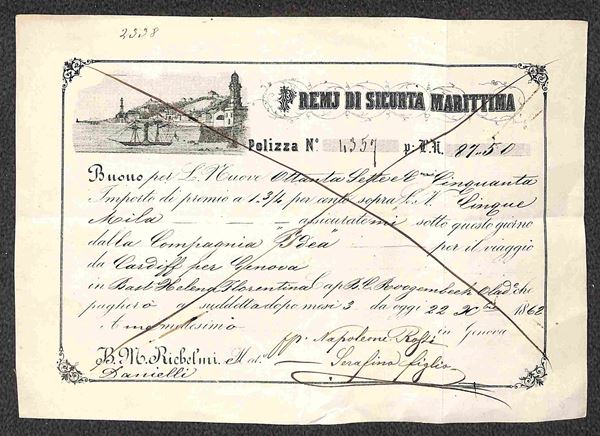 2338
PREMJ DI SICURTÀ MARITTIMA
Polizza N° 4357 p. L.N. 87.50
Buono per L. Nuove Ottanta Sette & Cmi Cinquanta
Importo di premio a 1.3/4 per cento sopra L.N. Cinque
Mila assicuratomi sotto questo giorno
dalla Compagnia "Idea" per il viaggio
da Cardiff per Genova
in Bast Helena Florentina Cap B.C. Olad che
pagherò a suddetta dopo mesi 3 da oggi 22 1862
A me medesimo in Genova
pp. Napoleone Rossi
B. M. Richelmi.
Serafino figlio
Danielli